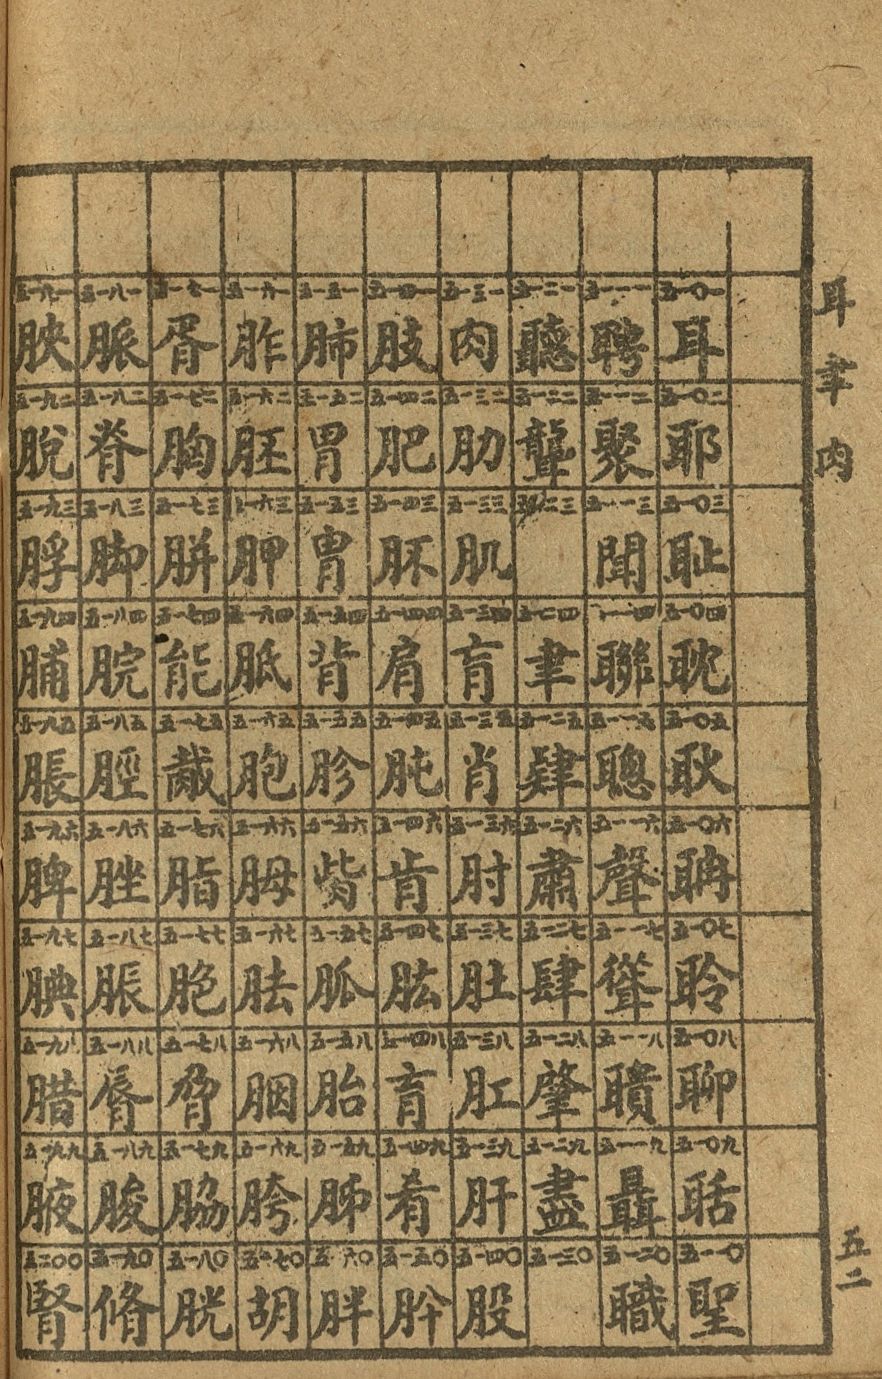 耳聿肉
五一〇一 耳
五一〇二 耶
五一〇三 耻
五一〇四 耽
五一〇五 耿
五一〇六 聃
五一〇七 聆
五一〇八 聊
五一〇九 聒
五一一〇 聖
五一一一 聘
五一一二 聚
五一一三 聞
五一一四 聯
五一一五 聰
五一一六 聲
五一一七 聳
五一一八 聵
五一一九 聶
五一二〇 職
五一二一 聽
五一二二 聾
五一二三
五一二四 聿
五一二五 肄
五一二六 肅
五一二七 肆
五一二八 肇
五一二九 盡
五一三〇
五一三一 肉
五一三二 肋
五一三三 肌
五一三四 肓
五一三五 肖
五一三六 肘
五一三七 肚
五一三八 肛
五一三九 肝
五一四〇 股
五一四一 肢
五一四二 肥
五一四三 肧
五一四四 肩
五一四五 肫
五一四六 肯
五一四七 肱
五一四八 育
五一四九 肴
五一五〇
五一五一 肺
五一五二 胃
五一五三 冑
五一五四 背
五一五五 胗
五一五六 胔
五一五七 胍
五一五八 胎
五一五九 胏
五一六〇 胖
五一六一 胙
五一六二 胚
五一六三 胛
五一六四 胝
五一六五 胞
五一六六 胟
五一六七 胠
五一六八 胭
五一六九 胯
五一七〇 胡
五一七一 胥
五一七二 胸
五一七三 胼
五一七四 能
五一七五 胾
五一七六 脂
五一七七 脃
五一七八 脅
五一七九 脇
五一八〇 胱
五一八一 脈
五一八二 脊
五一八三 脚
五一八四 脘
五一八五 脛
五一八六 脞
五一八七 脤
五一八八 脣
五一八九 脧
五一九〇 脩
五一九一
五一九二 脫
五一九三 脬
五一九四 脯
五一九五 脹
五一九六 脾
五一九七 腆
五一九八 腊
五一九九 腋
五二〇〇 腎
五二